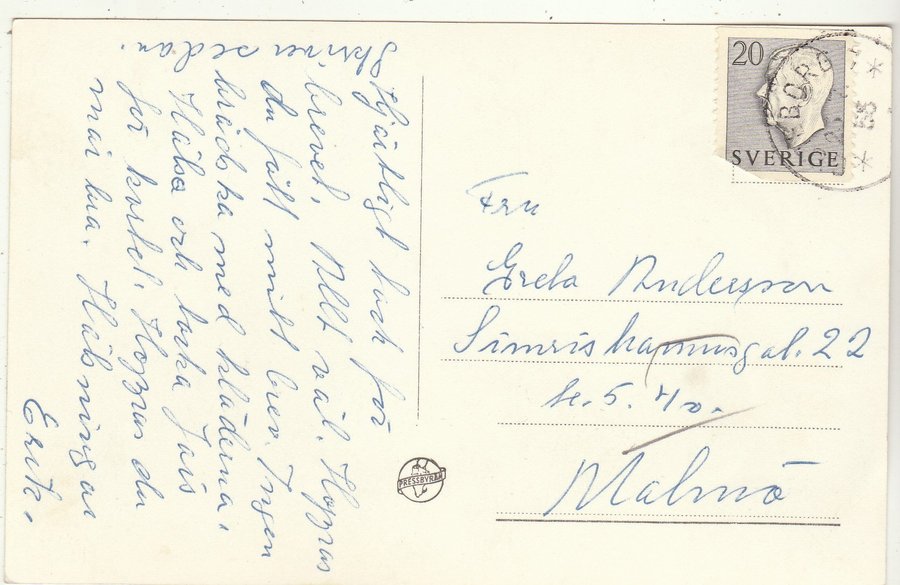 Hjärtligt tack för
brevet. Allt väl. Hoppas
du fått mitt brev. Ingen
brådska med kläderna.
Hälsa och tacka Lais
för kortet. Hoppas du
mår bra. Hälsningar
Erik.
Skriver sedan.
20
SVERIGE
BORG
55
Fru
Greta Andersson
Simrishamnsgat. 22
Malmö
PRESSBYRÅN